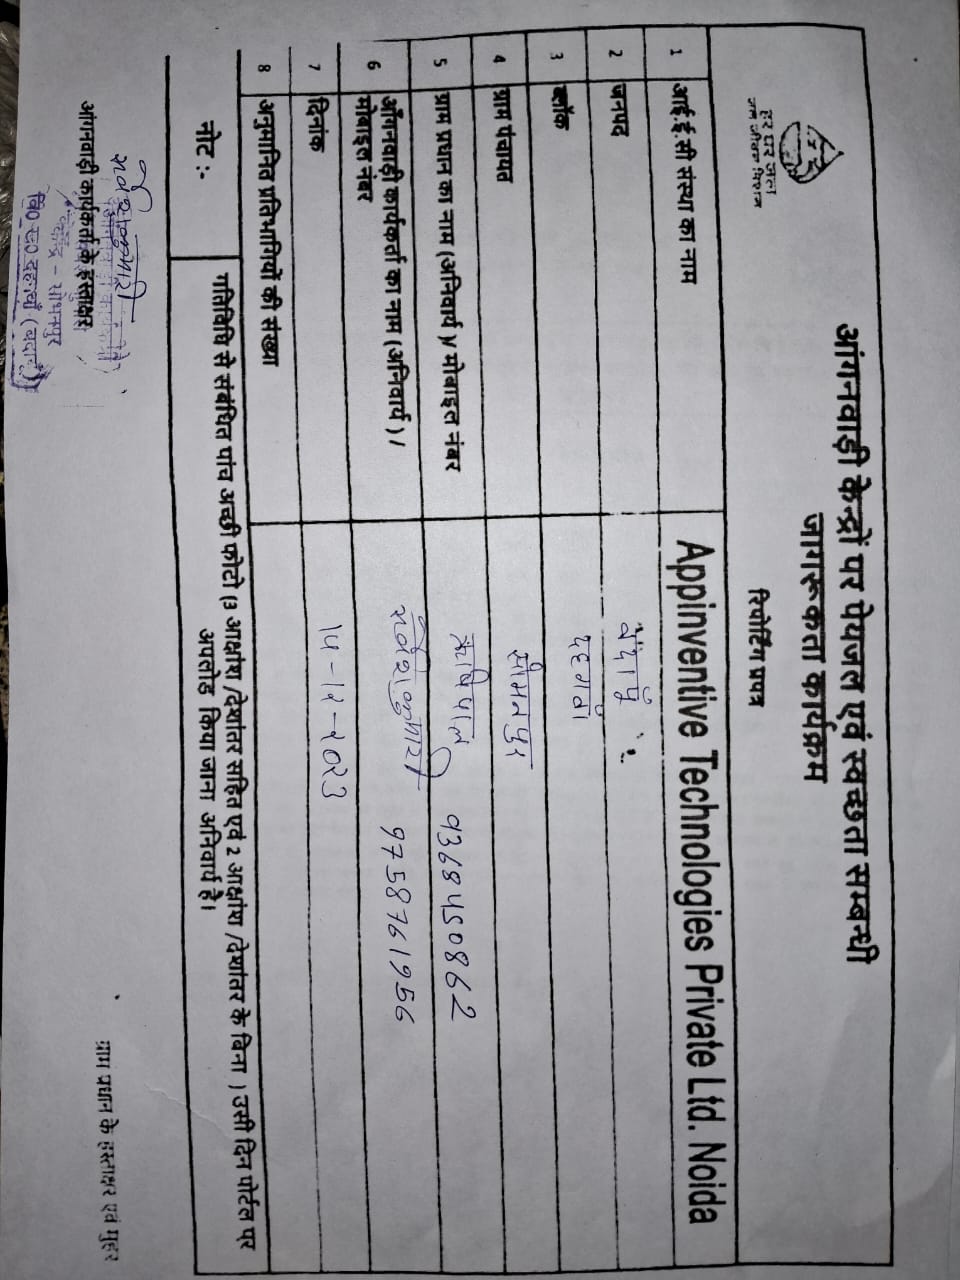 हर घर जल
जल जीवन मिशन
आंगनवाड़ी केन्द्रों पर पेयजल एवं स्वच्छता सम्बन्धी
जागरूकता कार्यक्रम
रिपोर्टिंग प्रपत्र
1 आई.ई.सी संस्था का नाम Appinventive Technologies Private Ltd. Noida
2 जनपद बदायूं
3 ब्लॉक दहगवां
4 ग्राम पंचायत भीमनपुर
5 ग्राम प्रधान का नाम (अनिवार्य) मोबाइल नंबर 9368450862
6 आँगनवाड़ी कार्यकर्ता का नाम (अनिवार्य)/ मोबाइल नंबर 9758761956
7 दिनांक 14-12-2023
8 अनुमानित प्रतिभागियों की संख्या
नोट :- गतिविधि से संबंधित पांच अच्छी फोटो (3 आक्षांश /देशांतर सहित एवं 2 आक्षांश /देशांतर के बिना ) उसी दिन पोर्टल पर
अपलोड किया जाना अनिवार्य है।
आंगनवाड़ी कार्यकर्ता के हस्ताक्षर
ग्राम प्रधान के हस्ताक्षर एवं मुहर